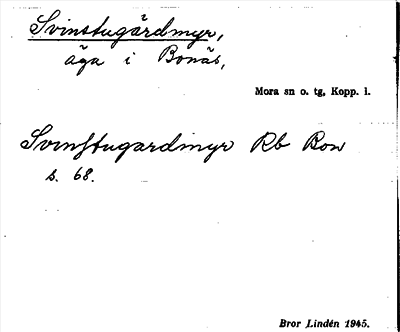 Svinstugårdmyr,
äga i Bonäs,
Mora sn o. tg, Kopp. l.
Svinstugardmyr Rb Bon
s. 68.
Bror Lindén 1945.